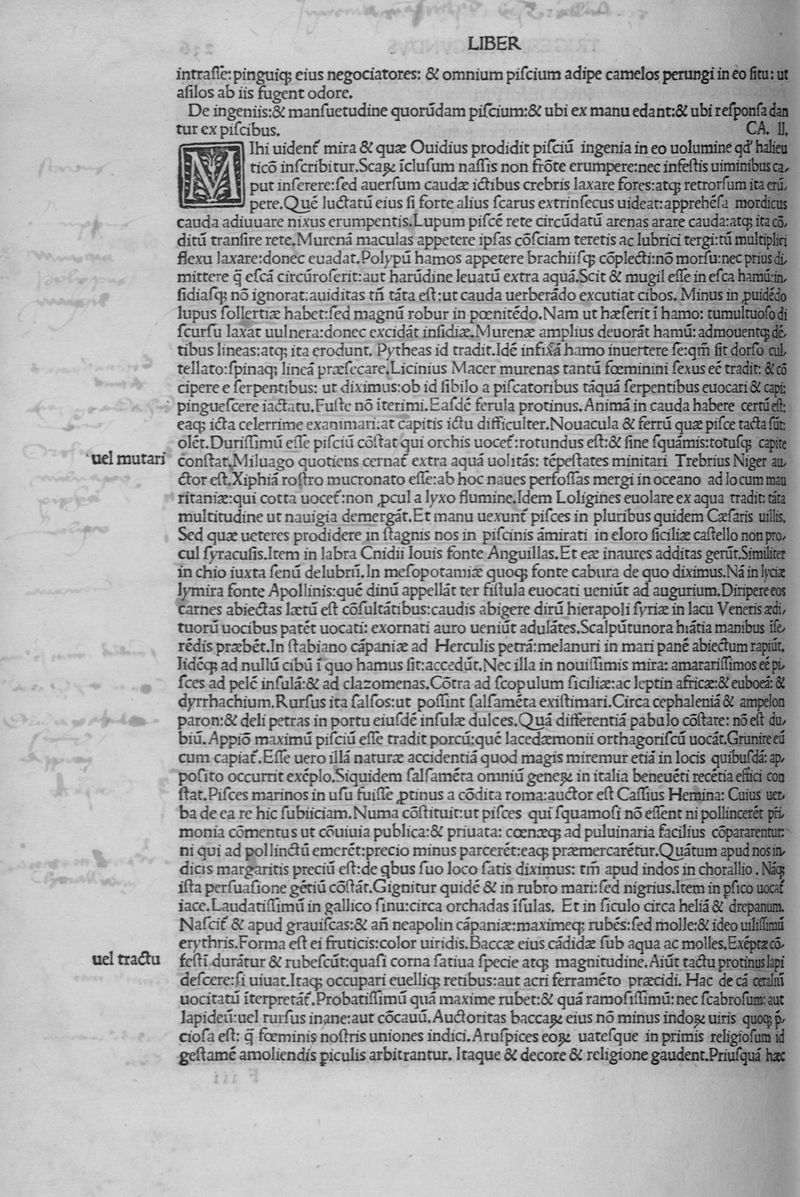 LIBER
intrasse: pinguiq; eius negociatores: & omnium piscium adipe camelos perungi in eo situ: ut
asilos ab iis fugent odore.
De ingeniis:& mansuetudine quorūdam piscium:& ubi ex manu edant:& ubi responsa dan
tur ex piscibus. CA. II.
MIhi uidenť mira & quæ Ouidius prodidit pisciū ingenia in eo uolumine qď halieu
ticō inscribitur.Scaꝝ īclusum nassis non frōte erumpere:nec infestis uiminibus ca,
put inserere:sed auersum caudæ ictibus crebris laxare fores:atq; retrorsum ita erū,
pere.Quē luctatū eius si forte alius scarus extrinsecus uideat:apprehēsa mordicus
cauda adiuuare nixus erumpentis.Lupum piscē rete circūdatū arenas arare cauda:atq; ita cō,
ditū transire rete.Murenā maculas appetere ipsas cōsciam teretis ac lubrici tergi:tū multiplici
flexu laxare:donec euadat.Polypū hamos appetere brachiisq; cōplecti:nō morsu:nec prius di,
mittere q̄ escā circūroserit:aut harūdine leuatū extra aquā.Scit & mugil esse in esca hamū:in,
sidiasq; nō ignorat:auiditas tn̄ tāta est:ut cauda uerberādo excutiat cibos. Minus in ꝓuidēdo
lupus sollertiæ habet:sed magnū robur in pœnitēdo.Nam ut hæserit ī hamo: tumultuoso di
scursu laxat uulnera:donec excidāt insidiæ.Murenæ amplius deuorāt hamū: admouentq; dē,
tibus lineas:atq; ita erodunt. Pytheas id tradit.Idē infixā hamo inuertere se:qm̄ sit dorso cul,
tellato:spinaq; lineā præsecare.Licinius Macer murenas tantū fœminini sexus eē tradit: & cō
cipere e serpentibus: ut diximus:ob id sibilo a piscatoribus tāquā serpentibus euocari & capi:
pinguescere iactatu.Fuste nō īterimi.Easdē ferula protinus.Animā in cauda habere certū est:
eaq; icta celerrime exanimari:at capitis ictu difficulter.Nouacula & ferrū quæ pisce tacta sūt:
olēt.Durissimū esse pisciū cōstat qui orchis uoceť:rotundus est:& sine squāmis:totusq; capite
uel mutari
constat.Miluago quotiens cernať extra aquā uolitās: tēpestates minitari Trebrius Niger au,
ctor est.Xiphiā rostro mucronato esse:ab hoc naues perfossas mergi in oceano ad locum mau
ritaniæ:qui cotta uoceť:non ꝓcul a lyxo flumine.Idem Loligines euolare ex aqua tradit: tāta
multitudine ut nauigia demergāt.Et manu uexunť pisces in pluribus quidem Cæsaris uillis.
Sed quæ ueteres prodidere in stagnis nos in piscinis āmirati in eloro siciliæ castello non pro,
cul syracusis.Item in labra Cnidii Iouis fonte Anguillas.Et eæ inaures additas gerūt.Similiter
in chio iuxta senū delubrū.In mesopotamiæ quoq; fonte cabura de quo diximus.Nā in lyciæ
lymira fonte Apollinis:quē dinū appellāt ter fistula euocati ueniūt ad augurium.Diripere eos
carnes abiectas lætū est cōsultātibus:caudis abigere dirū hierapoli syriæ in lacu Veneris ædi,
tuorū uocibus patēt uocati: exornati auro ueniūt adulātes.Scalpūtunora hiātia manibus ise,
rēdis præbēt.In stabiano cāpaniæ ad Herculis petrā:melanuri in mari panē abiectum rapiūt.
Iidēq; ad nullū cibū ī quo hamus sit:accedūt.Nec illa in nouissimis mira: amararissimos eē pi,
sces ad pelē insulā:& ad clazomenas.Cōtra ad scopulum siciliæ:ac leptin africæ:& euboeā: &
dyrrhachium.Rursus ita salsos:ut possint salsamēta existimari.Circa cephaleniā & ampelon
paron:& deli petras in portu eiusdē insulæ dulces.Quā differentiā pabulo cōstare: nō est du,
biū. Appiō maximū pisciū esse tradit porcū:quē lacedæmonii orthagoriscū uocāt.Grunire eū
cum capiať.Esse uero illā naturæ accidentiā quod magis miremur etiā in locis quibusdā: ap,
posito occurrit exēplo.Siquidem salsamēta omniū geneꝝ in italia beneuēti recētia effici con
stat.Pisces marinos in usu fuisse ꝓtinus a cōdita roma:auctor est Cassius Hemina: Cuius uer,
ba de ea re hic subiiciam.Numa cōstituit:ut pisces qui squamosi nō essent ni pollincerēt pri,
monia cōmentus ut cōuiuia publica:& priuata: cœnæq; ad puluinaria facilius cōpararentur:
ni qui ad pollinctū emerēt:precio minus parcerēt:eaq; præmercarētur.Quātum apud nos in,
dicis margaritis preciū est:de qbus suo loco satis diximus: tm̄ apud indos in chorallio. Nāq;
ista persuasione gētiū cōstāt.Gignitur quidē & in rubro mari: sed nigrius.Item in psico uocať
iace.Laudatissimū in gallico sinu:circa orchadas īsulas. Et in siculo circa heliā & drepanum.
Nasciť & apud grauiscas:& an̄ neapolin cāpaniæ:maximeq; rubēs:sed molle:& ideo uilissimū
erythris.Forma est ei fruticis:color uiridis.Baccæ eius cādidæ sub aqua ac molles.Exēptæ cō,
uel tractu
festī durātur & rubescūt:quasi corna satiua specie atq; magnitudine.Aiūt tactu protinus lapi
descere:si uiuat.Itaq; occupari euelliq; retibus:aut acri ferramēto præcidi. Hac de cā ceraliū
uocitatū īterpretāť.Probatissimū quā maxime rubet:& quā ramosissimū:nec scabrosum: aut
lapideū:uel rursus inane:aut cōcauū.Auctoritas baccaꝝ eius nō minus indoꝝ uiris quoq; p̄,
ciosa est: q̄ fœminis nostris uniones indici.Aruspices eoꝝ uatesque in primis religiosum id
gestamē amoliendis piculis arbitrantur. Itaque & decore & religione gaudent.Priusquā hæc